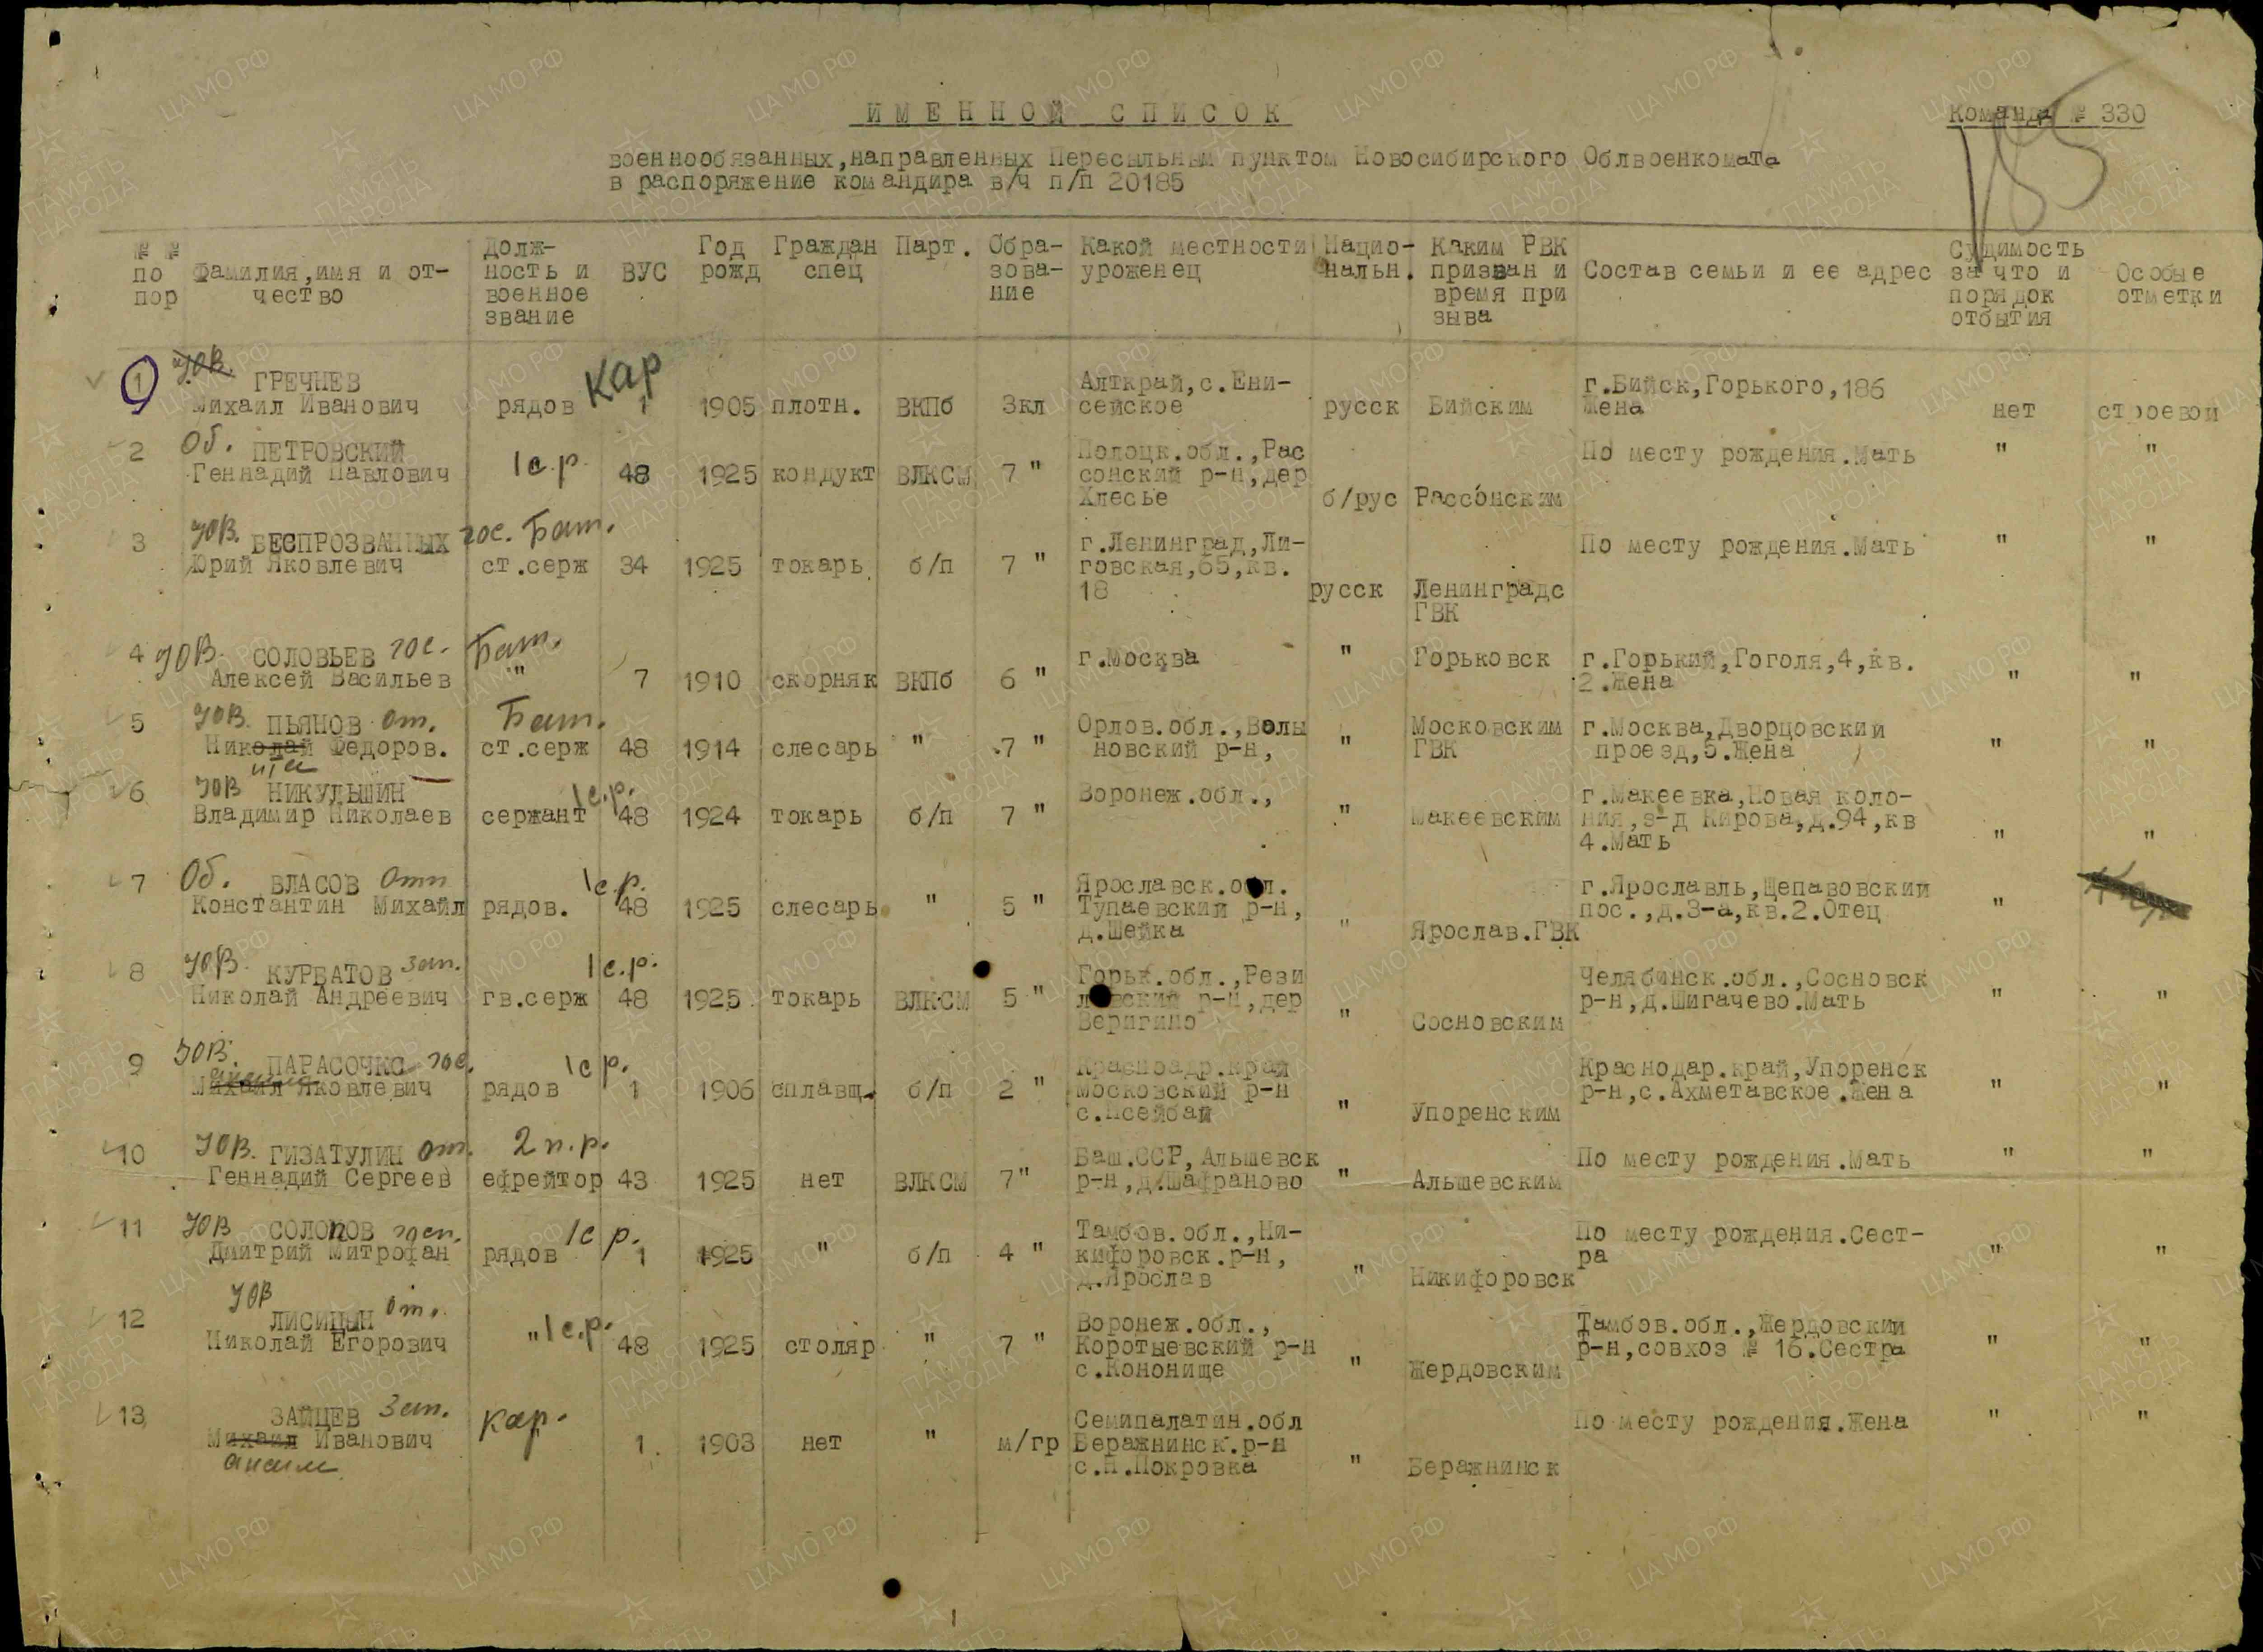 ИМЕННОЙ СПИСОК
Команда № 330
185
военнообязанных,направленных Пересыльным пунктом Новосибирского Облвоенкомата
в распоряжение командира в/ч п/п 20185
№ № по пор
Фамилия,имя и от-
чество
Долж-
ность и
военное
звание
ВУС
Год
рожд
Граждан
спец
Парт.
Обра-
зова-
ние
Какой местности
уроженец
Нацио-
нальн.
Каким РВК
призван и
время при
зыва
Состав семьи и ее адрес
Судимость
за что и
порядок
отбытия
Особые
отметки
Юв. кар
1 ГРЕЧНЕВ Алткрай,с.Ени- г.Бийск,Горького,186
Михаил Иванович рядов 1 1905 плотн. ВКПб 3кл сейское русск Бийским Жена нет строевой
2 Об. ПЕТРОВСКИЙ 1 с.р. Полоцк.обл.,Рас По месту рождения.Мать " "
Геннадий Павлович 48 1925 кондукт ВЛКСМ 7 " сонский р-н,дер
Клесье б/рус Рассонским
3 Юв. БЕСПРОЗВАННЫХ гос. Бат. г.Ленинград,Ли- По месту рождения.Мать " "
Юрий Яковлевич ст.серж 34 1925 токарь б/п 7 " говская,65,кв.
18 русск Ленинградс
ГВК
4 Юв. СОЛОВЬЕВ гос. Бат. г.Москва " Горьковск г.Горький,Гоголя,4,кв.
Алексей Васильев " 7 1910 скорняк ВКПб 6 " 2.Жена " "
5 Юв. ПЬЯНОВ от. Бат. Орлов.обл.,Волы Московским г.Москва,Дворцовский
Николай Федоров. ст.серж 48 1914 слесарь " 7 " новский р-н, " ГВК проезд,5.Жена " "
6 Юв НИКУЛЬШИН 1 с.р. Воронеж.обл., г.Макеевка,Новая коло-
Владимир Николаев сержант 48 1924 токарь б/п 7 " " Макеевским ния,з-д Кирова,д.94,кв
4.Мать " "
7 Об. ВЛАСОВ отп 1 с.р. Ярославск.обл. г.Ярославль,Щепавовский
Константин Михайл рядов. 48 1925 слесарь " 5 " Тупаевский р-н, пос.,д.3-а,кв.2.Отец "
д.Шейка " Ярослав.ГВК
8 Юв. КУРБАТОВ зап. 1 с.р. Горьк.обл.,Рези Челябинск.обл.,Сосновск
Николай Андреевич гв.серж 48 1925 токарь ВЛКСМ 5 " ловский р-н,дер р-н,д.Шигачево.Мать " "
Веригино " Сосновским
9 Юв. ПАРАСОЧКО гос. 1 с р. Красноадр.край Краснодар.край,Упоренск
Михаил Яковлевич рядов 1 1906 сплавщ. б/п 2 " Московский р-н р-н,с.Ахметавское.Жена " "
с.Псейбай " Упоренским
10 Юв. ГИЗАТУЛИН от. 2 п.р. Баш.ССР,Альшевск По месту рождения.Мать " "
Геннадий Сергеев ефрейтор 43 1925 нет ВЛКСМ 7" р-н,д.Шафраново " Альшевским
11 Юв СОЛОПОВ 1 с р. Тамбов.обл.,Ни- По месту рождения.Сест-
Дмитрий Митрофан рядов 1 1925 " б/п 4 " кифоровск.р-н, ра " "
д.Ярослав " Никифоровск
12 Юв ЛИСИЦЫН от. Воронеж.обл., Тамбов.обл.,Жердовский
Николай Егорович " 1 с.р. 48 1925 столяр " 7 " Коротыевский р-н р-н,совхоз № 16.Сестра " "
с.Кононище " Жердовским
13 ЗАЙЦЕВ Зап. кар. Семипалатин.обл По месту рождения.Жена " "
Михаил Иванович 1 1903 нет " м/гр Беражнинск.р-н
с.Н.Покровка " Беражнинск